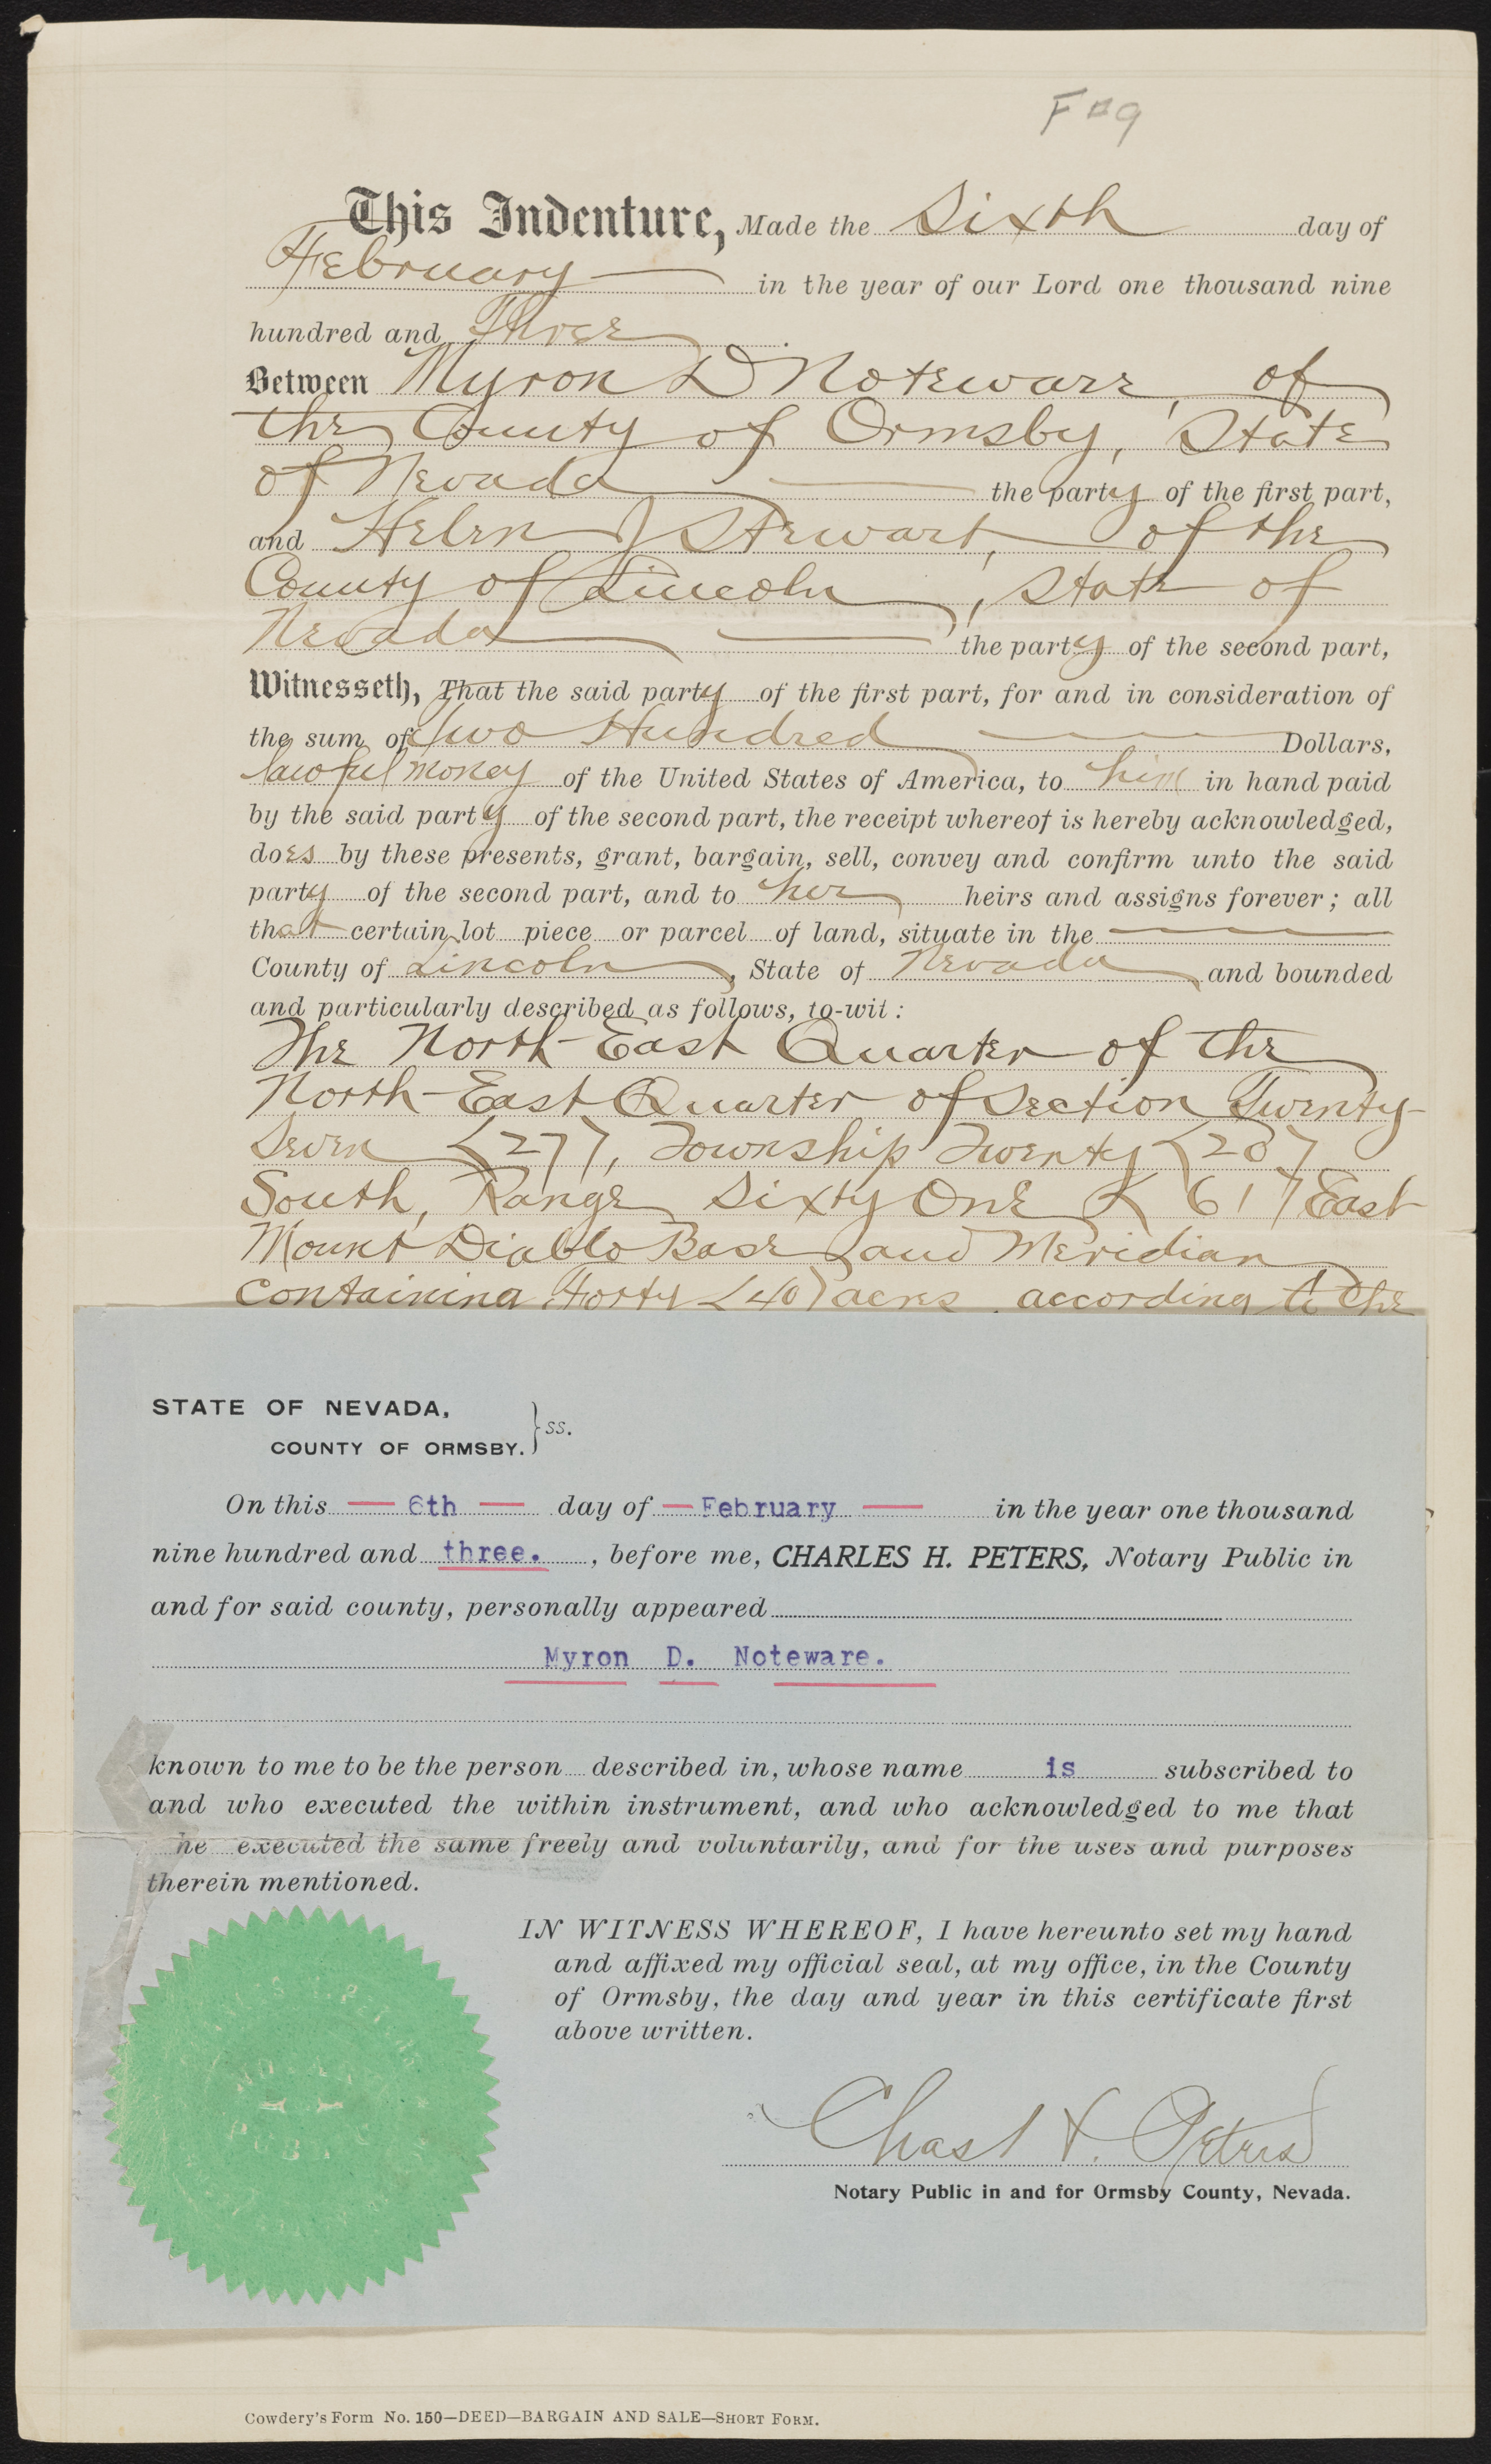 F#9
This Indenture, Made the Sixth day of
February in the year of our Lord one thousand nine
hundred and Three
Between Myron D Noteware, of
the County of Ormsby, State
of Nevada the party of the first part,
and Helen J Stewart, of the
County of Lincoln, State of
Nevada the party of the second part,
Witnesseth, That the said party of the first part, for and in consideration of
the sum of Two Hundred Dollars,
lawful money of the United States of America, to him in hand paid
by the said party of the second part, the receipt whereof is hereby acknowledged,
does by these presents, grant, bargain, sell, convey and confirm unto the said
party of the second part, and to her heirs and assigns forever; all
that certain lot piece or parcel of land, situate in the
County of Lincoln, State of Nevada and bounded
and particularly described as follows, to-wit:
The North-East Quarter of the
North-East Quarter of Section Twenty-
Seven (27), Township Twenty (20)
South, Range Sixty One (61) East
Mount Diablo Base and Meridian
Containing Forty (40) acres according to the
STATE OF NEVADA,
COUNTY OF ORMSBY. } ss.
On this 6th day of February in the year one thousand
nine hundred and three. , before me, CHARLES H. PETERS, Notary Public in
and for said county, personally appeared
Myron D. Noteware.
known to me to be the person described in, whose name is subscribed to
and who executed the within instrument, and who acknowledged to me that
he executed the same freely and voluntarily, and for the uses and purposes
therein mentioned.
IN WITNESS WHEREOF, I have hereunto set my hand
and affixed my official seal, at my office, in the County
of Ormsby, the day and year in this certificate first
above written.
Chas H. Peters
Notary Public in and for Ormsby County, Nevada.
Cowdery's Form No. 150—DEED—BARGAIN AND SALE—SHORT FORM.